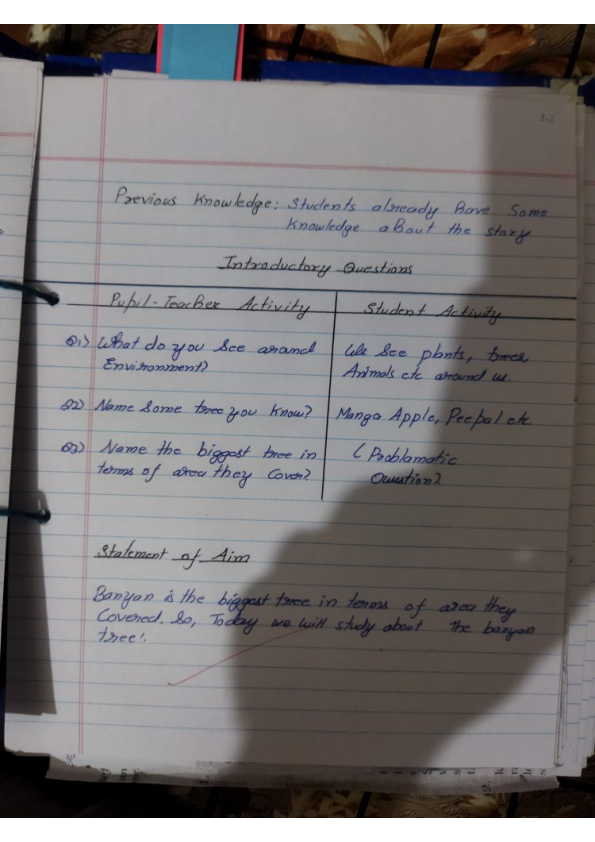 Previous Knowledge: Students already have some
knowledge about the story
Introductory Questions
Pupil-Teacher Activity
Student Activity
Q1) What do you see around
Environment?
We see plants, trees,
Animals etc around us.
Q2) Name some tree you know?
Mango Apple, Peepal etc.
Q3) Name the biggest tree in
terms of area they cover?
( Problamatic
Question?
Statement of Aim
Banyan is the biggest tree in terms of area they
Covered. So, Today we will study about the banyan
tree'.